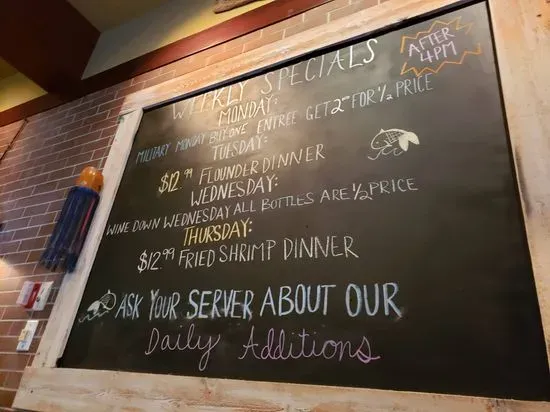 WEEKLY SPECIALS
AFTER
4PM
MONDAY:
MILITARY MONDAY BUY ONE ENTREE GET 2ND FOR 1/2 PRICE
TUESDAY:
$12.99 FLOUNDER DINNER
WEDNESDAY:
WINE DOWN WEDNESDAY ALL BOTTLES ARE 1/2 PRICE
THURSDAY:
$12.99 FRIED SHRIMP DINNER
ASK YOUR SERVER ABOUT OUR
Daily Additions